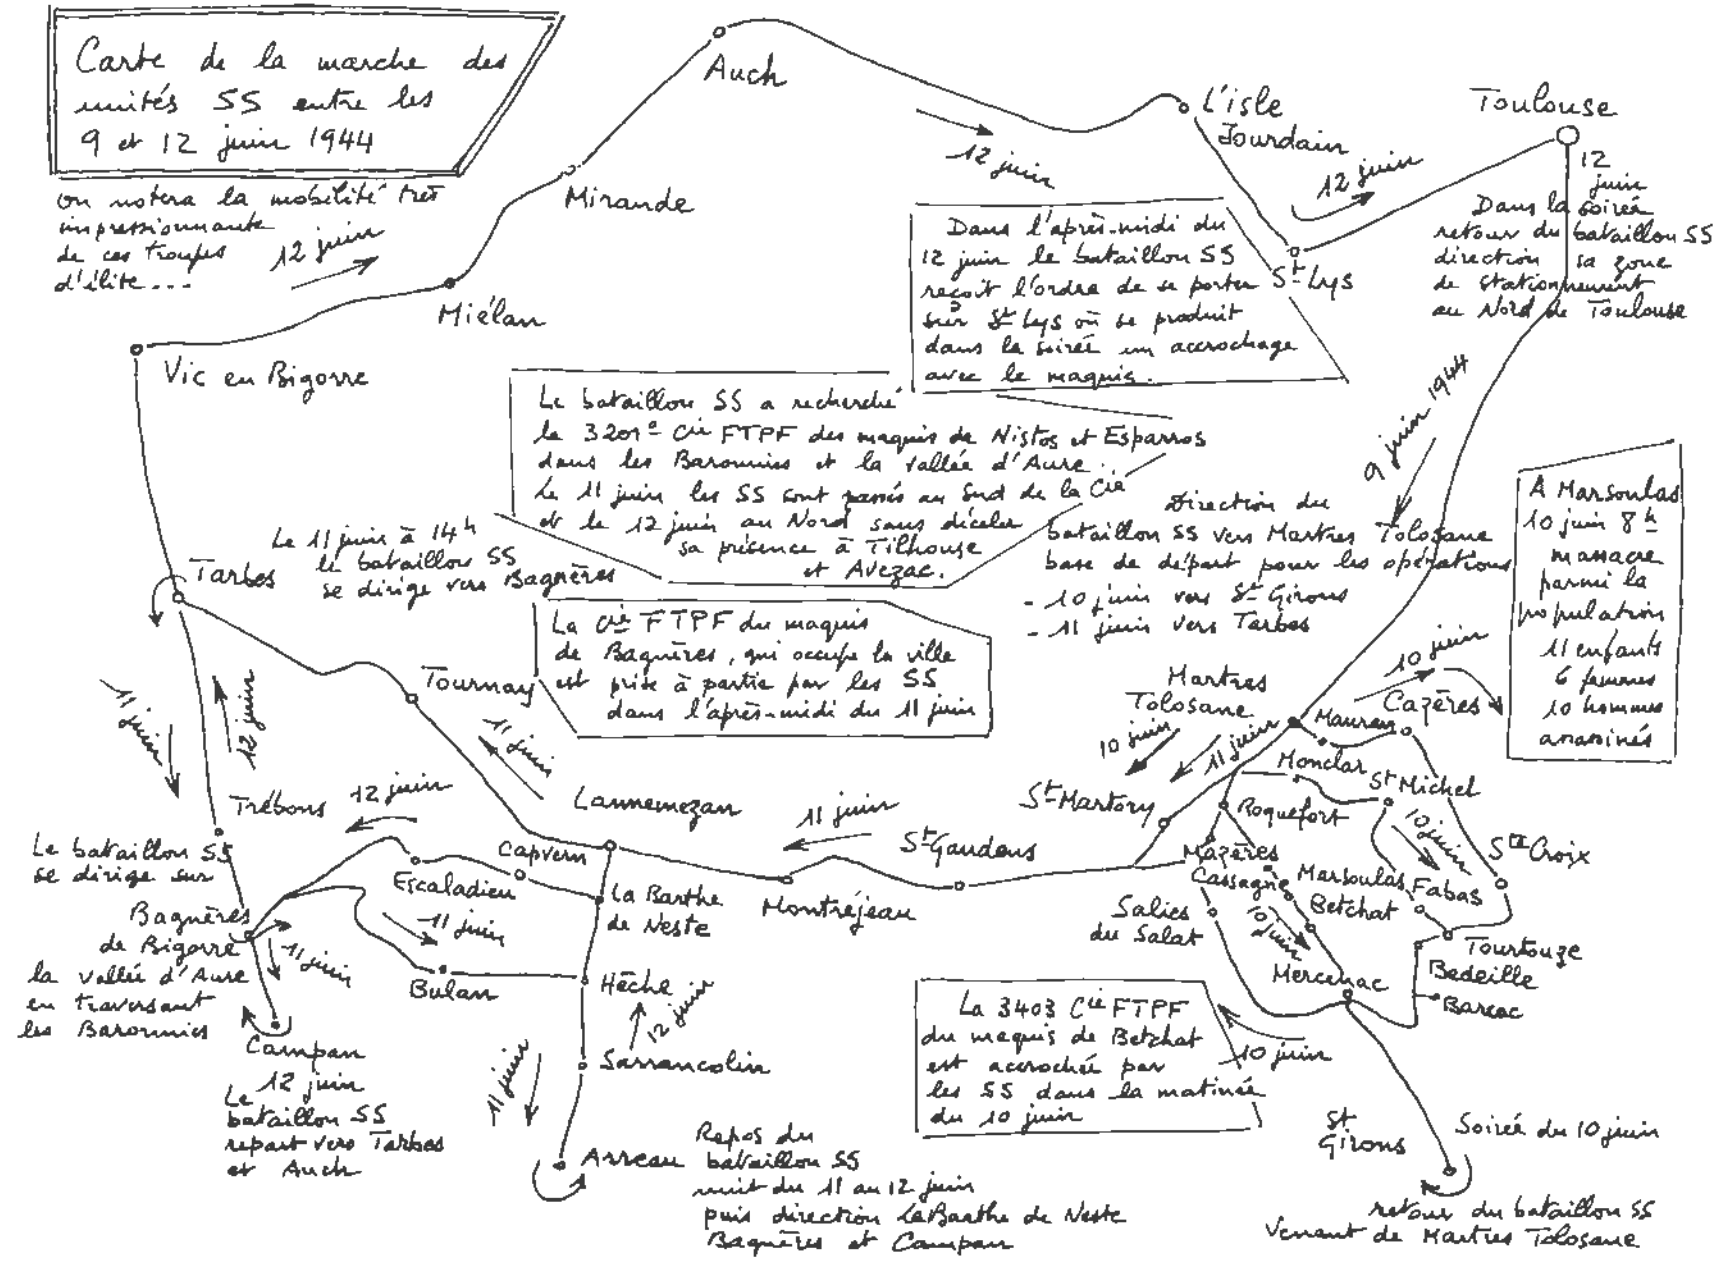 Carte de la marche des
unités SS entre les
9 et 12 juin 1944
on notera la mobilité très
impressionnante
de ces troupes
d'élite...
12 juin
Auch
Mirande
Miélan
Vic en Bigorre
12 juin
L'isle
Jourdain
12 juin
Toulouse
12
juin
Dans la soirée
retour du bataillon SS
direction sa zone
de stationnement
au Nord de Toulouse
St Lys
Dans l'après-midi du
12 juin le bataillon SS
reçoit l'ordre de se porter
sur St Lys où se produit
dans la soirée un accrochage
avec le maquis.
9 juin 1944
Le bataillon SS a recherché
la 3201e Cie FTPF des maquis de Nistos et Esparros
dans les Baronnies et la vallée d'Aure..
Le 11 juin les SS sont passés au Sud de la Cie
et le 12 juin au Nord sans déceler
sa présence à Tilhouse
et Avezac.
Direction du
bataillon SS vers Martres Tolosane
base de départ pour les opérations
- 10 juin vers St Girons
- 11 juin vers Tarbes
A Marsoulas
10 juin 8h
massacre
parmi la
population
11 enfants
6 femmes
10 hommes
assassinés
Le 11 juin à 14h
le bataillon SS
se dirige vers Bagnères
Tarbes
La Cie FTPF du maquis
de Bagnères, qui occupe la ville
est prise à partie par les SS
dans l'après-midi du 11 juin
Tournay
11 juin
11 juin
12 juin
Martres
Tolosane
10 juin
11 juin
10 juin
Mauran
Cazères
Monclar
St Michel
Roquefort
10 juin
Ste Croix
Trébons
12 juin
Lannemezan
11 juin
St Martory
St Gaudens
Capvern
Escaladieu
La Barthe
de Neste
Montréjeau
Mazères
Cassagne
Marsoulas
Betchat
Fabas
Salies
du Salat
10 juin
Mercenac
Tourtouze
Bedeille
Barcac
Le bataillon SS
se dirige sur
Bagnères
de Bigorre
la vallée d'Aure
en traversant
les Baronnies
11 juin
11 juin
Bulan
Hèche
12 juin
Sarrancolin
11 juin
Campan
12 juin
Le
bataillon SS
repart vers Tarbes
et Auch
Arreau
Repos du
bataillon SS
nuit du 11 au 12 juin
puis direction La Barthe de Neste
Bagnères et Campan
La 3403 Cie FTPF
du maquis de Betchat
est accrochée par
les SS dans la matinée
du 10 juin
10 juin
St
Girons
Soirée du 10 juin
retour du bataillon SS
Venant de Martres Tolosane